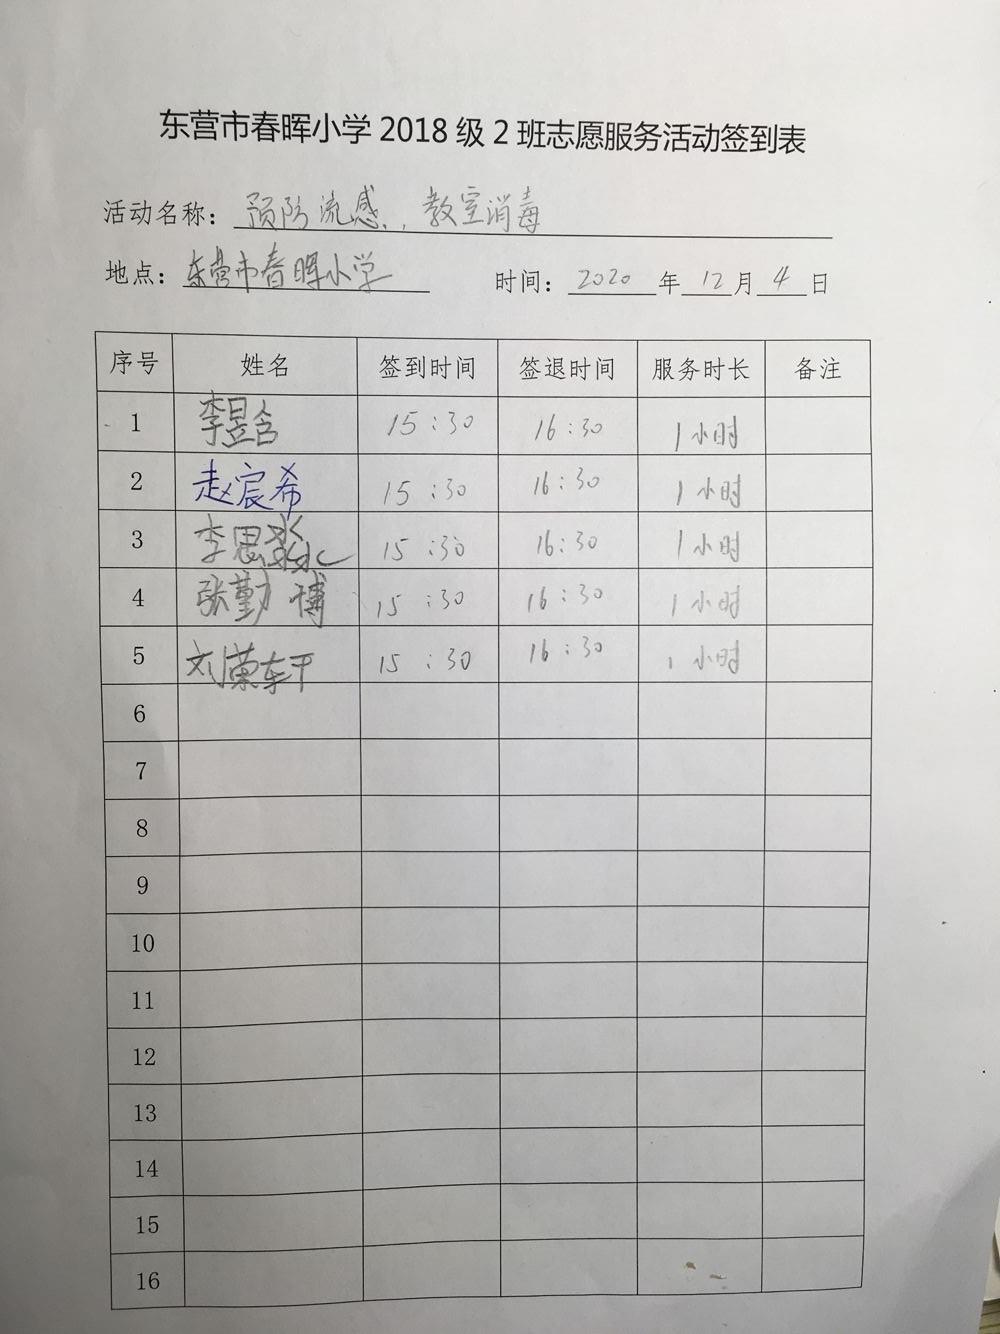 东营市春晖小学2018级2班志愿服务活动签到表
活动名称：预防流感，教室消毒
地点：东营市春晖小学 时间：2020年12月4日
序号 姓名 签到时间 签退时间 服务时长 备注
1 李昱含 15:30 16:30 1小时
2 赵宸希 15:30 16:30 1小时
3 李思 15:30 16:30 1小时
4 张勤博 15:30 16:30 1小时
5 刘荣 15:30 16:30 1小时
6
7
8
9
10
11
12
13
14
15
16